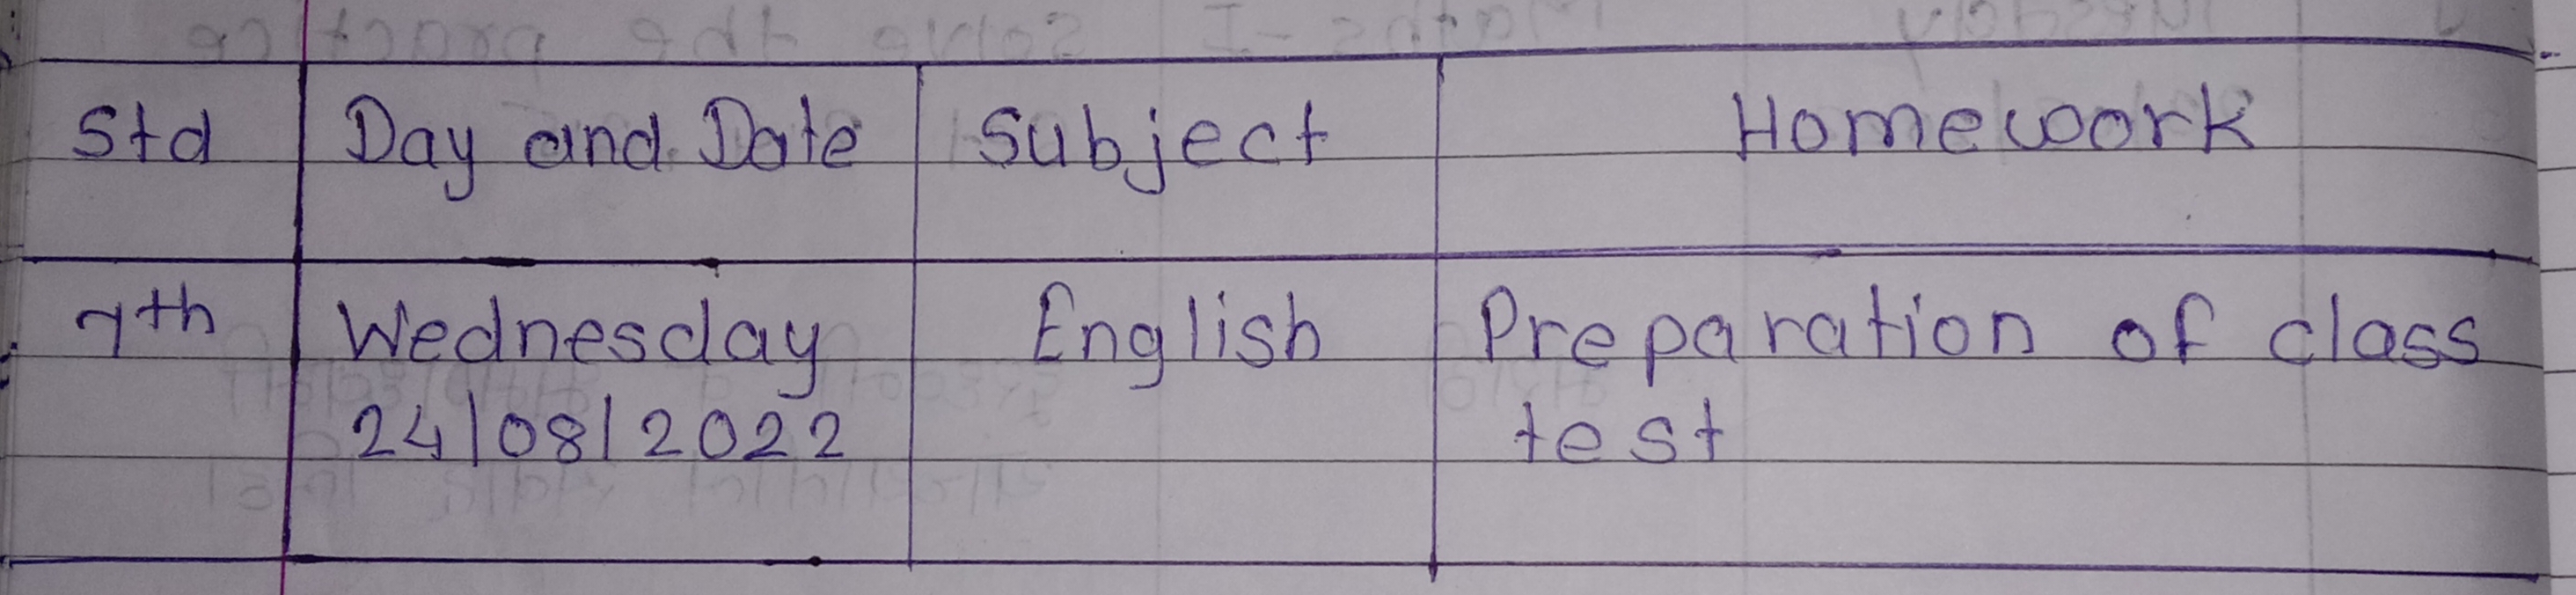 Std Day and Date Subject Homework
7th Wednesday English Preparation of class
24/08/2022 test